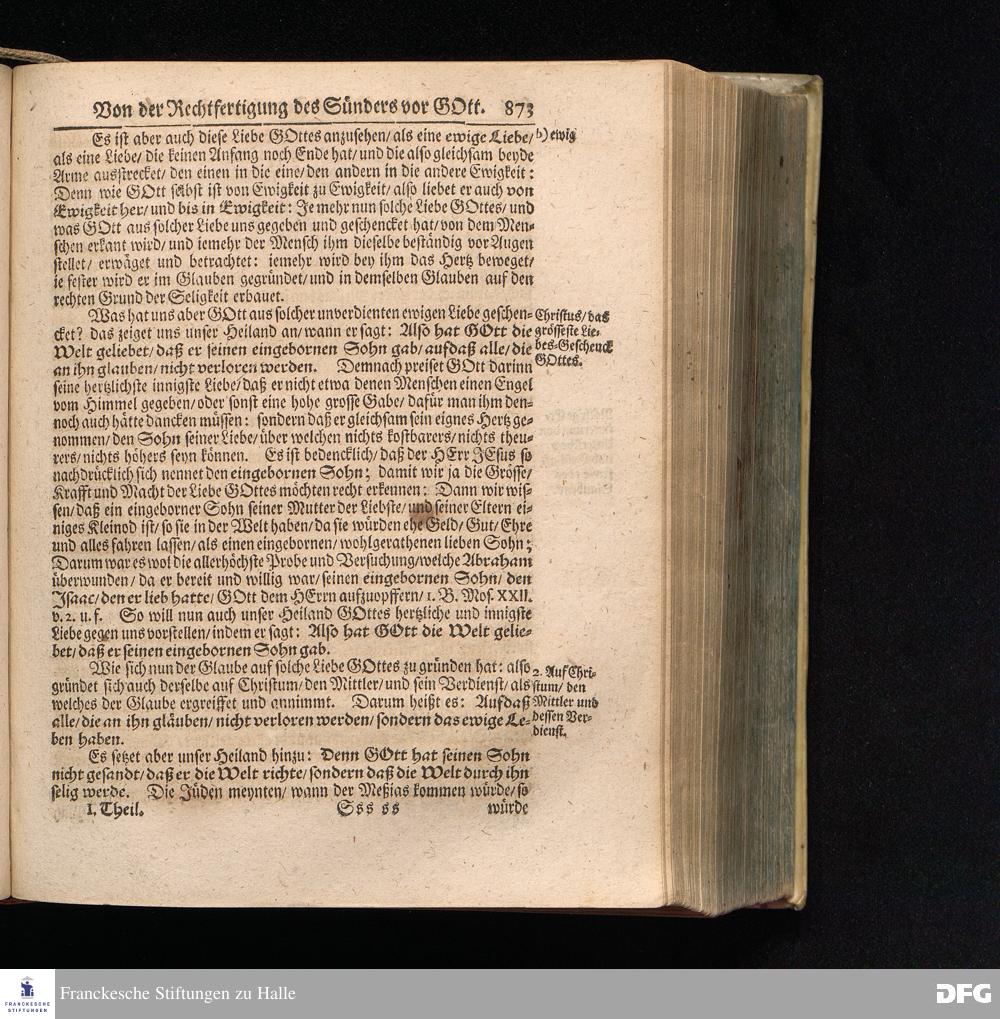 Von der Rechtfertigung des Sünders vor GOtt. 873
Es ist aber auch diese Liebe GOttes anzusehen/ als eine ewige Liebe/
b) ewig
als eine Liebe/ die keinen Anfang noch Ende hat/ und die also gleichsam beyde
Arme ausstrecket/ den einen in die eine/ den andern in die andere Ewigkeit:
Denn wie GOtt selbst ist von Ewigkeit zu Ewigkeit/ also liebet er auch von
Ewigkeit her/ und bis in Ewigkeit: Je mehr nun solche Liebe GOttes/ und
was GOtt aus solcher Liebe uns gegeben und geschencket hat/ von dem Men-
schen erkant wird/ und iemehr der Mensch ihm dieselbe beständig vor Augen
stellet/ erwäget und betrachtet: iemehr wird bey ihm das Hertz beweget/
ie fester wird er im Glauben gegründet/ und in demselben Glauben auf den
rechten Grund der Seligkeit erbauet.
Was hat uns aber GOtt aus solcher unverdienten ewigen Liebe geschen-
cket? das zeiget uns unser Heiland an/ wann er sagt: Also hat GOtt die
Welt geliebet/ daß er seinen eingebornen Sohn gab/ aufdaß alle/ die
an ihn glauben/ nicht verloren werden. Demnach preiset GOtt darinn
Christus/ das
grösseste Lie-
bes-Geschenck
GOttes.
seine hertzlichste innigste Liebe/ daß er nicht etwa denen Menschen einen Engel
vom Himmel gegeben/ oder sonst eine hohe grosse Gabe/ dafür man ihm den-
noch auch hätte dancken müssen: sondern daß er gleichsam sein eignes Hertz ge-
nommen/ den Sohn seiner Liebe/ über welchen nichts kostbarers/ nichts theu-
rers/ nichts höhers seyn können. Es ist bedencklich/ daß der HErr JEsus so
nachdrücklich sich nennet den eingebornen Sohn; damit wir ja die Grösse/
Krafft und Macht der Liebe GOttes möchten recht erkennen: Dann wir wis-
sen/ daß ein eingeborner Sohn seiner Mutter der Liebste/ und seiner Eltern ei-
niges Kleinod ist/ so sie in der Welt haben/ da sie würden ehe Geld/ Gut/ Ehre
und alles fahren lassen/ als einen eingebornen/ wohlgerathenen lieben Sohn;
Darum war es wol die allerhöchste Probe und Versuchung/ welche Abraham
überwunden/ da er bereit und willig war/ seinen eingebornen Sohn/ den
Isaac/ den er lieb hatte/ GOtt dem HErrn aufzuopffern/ 1. B. Mos. XXII.
v. 2. u. f. So will nun auch unser Heiland GOttes hertzliche und innigste
Liebe gegen uns vorstellen/ indem er sagt: Also hat GOtt die Welt gelie-
bet/ daß er seinen eingebornen Sohn gab.
Wie sich nun der Glaube auf solche Liebe GOttes zu gründen hat: also
gründet sich auch derselbe auf Christum/ den Mittler/ und sein Verdienst/ als
welches der Glaube ergreiffet und annimmt. Darum heißt es: Aufdaß
alle/ die an ihn gläuben/ nicht verloren werden/ sondern das ewige Le-
ben haben.
2. Auf Chri-
stum/ den
Mittler und
dessen Ver-
dienst.
Es setzet aber unser Heiland hinzu: Denn GOtt hat seinen Sohn
nicht gesandt/ daß er die Welt richte/ sondern daß die Welt durch ihn
selig werde. Die Jüden meynten/ wann der Meßias kommen würde/ so
I. Theil. Sss ss würde
FRANCKESCHE
STIFTUNGEN
Franckesche Stiftungen zu Halle
DFG